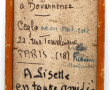 à Douarnenez
Ceglo
22 rue Tourlaque
PARIS (18)
A Lisette
en toute amitié